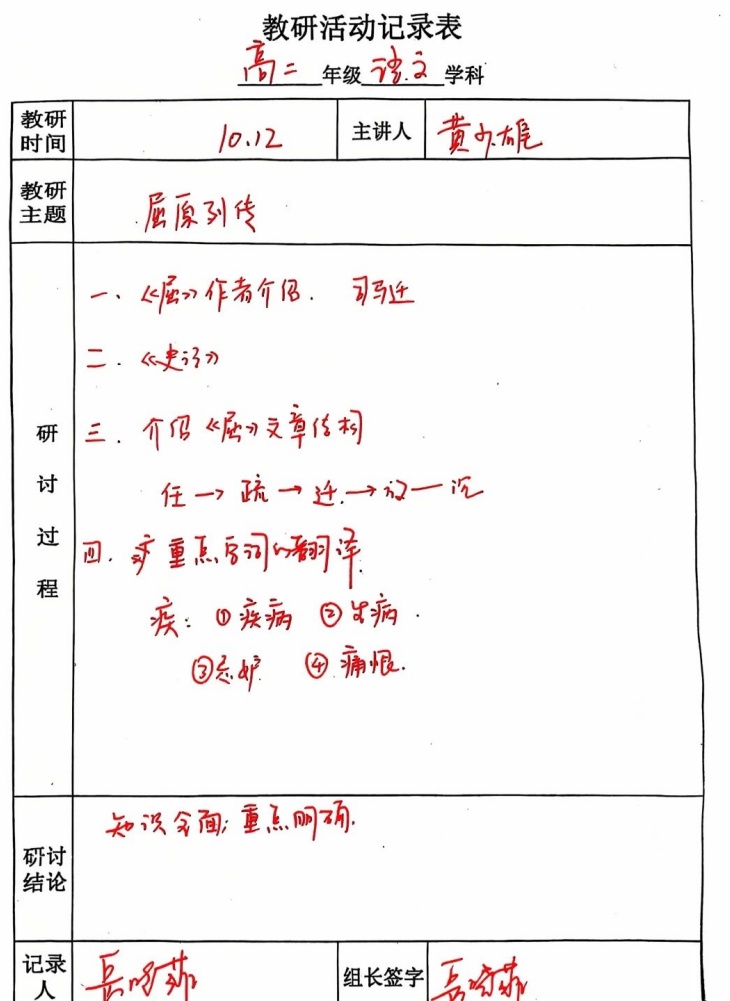 教研活动记录表
高二 年级 语文 学科
教研时间 10.12 主讲人 黄少雄
教研主题 屈原列传
研讨过程
一、《屈》作者介绍. 司马迁
二.《史记》
三. 介绍《屈》文章结构
任→疏→迁→放—沉
四. 重点字词的翻译.
疾: ①疾病 ②生病.
③忌妒 ④痛恨.
研讨结论 知识全面; 重点明确.
记录人
组长签字